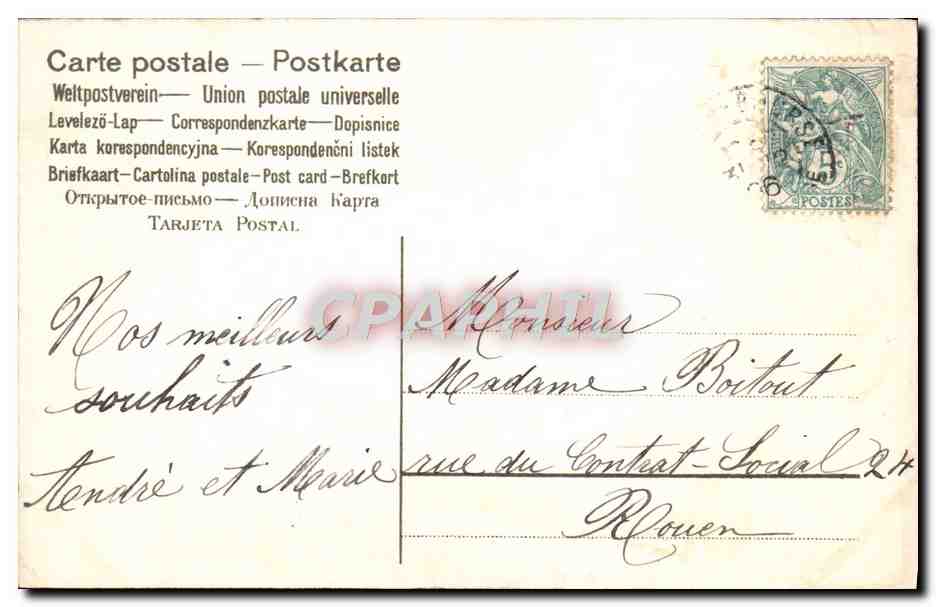 Carte postale — Postkarte
Weltpostverein — Union postale universelle
Levelező-Lap — Correspondenzkarte — Dopisnice
Karta korespondencyjna — Korespondenčni listek
Briefkaart — Cartolina postale — Post card — Brefkort
Открытое-письмо — Дописна Карта
TARJETA POSTAL
5c
POSTES
CPAPHIL
Nos meilleurs
souhaits
André et Marie
Monsieur
Madame Boitout
rue du Contrat-Social 24
Rouen